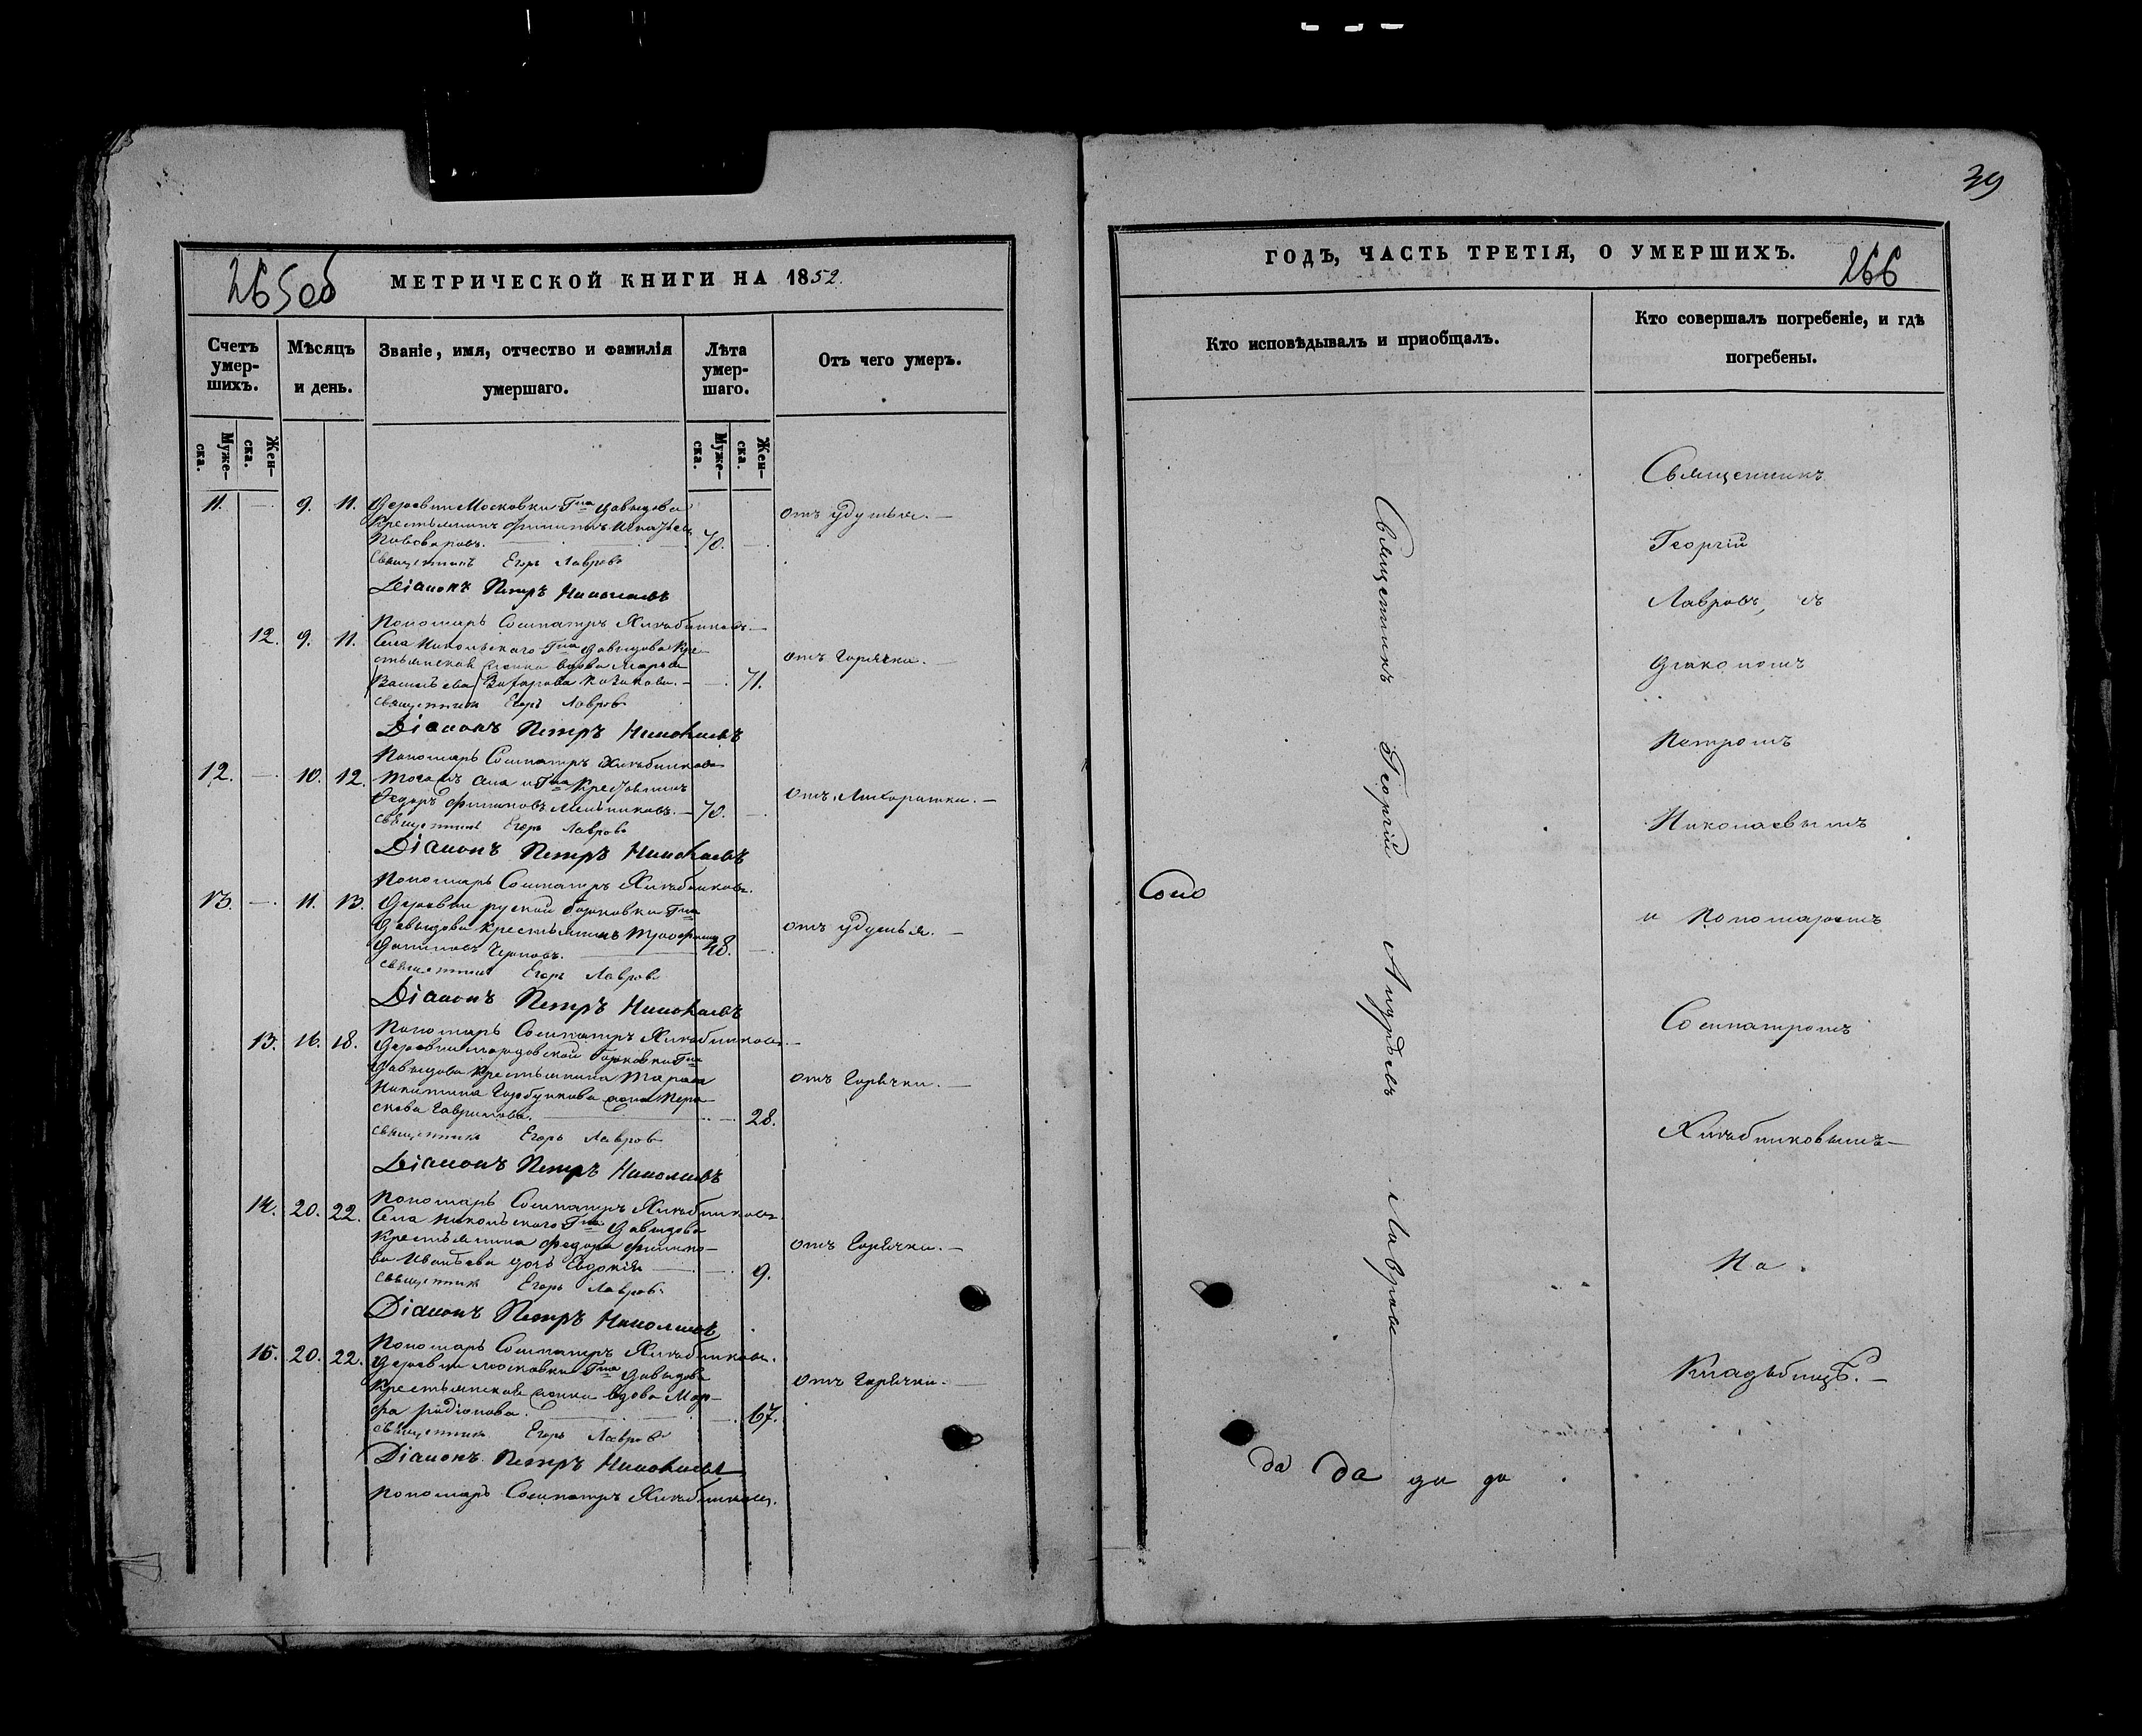 265 об
МЕТРИЧЕСКОЙ КНИГИ НА 1852.
Счетъ умер-
шихъ.
Мѣсяцъ
и день.
Званіе, имя, отчество и фамилія
умершаго.
Лѣта
умер-
шаго.
Отъ чего умеръ.
Муже-
ска.
Жен-
ска.
Муже-
ска.
Жен-
ска.
11. — 9. 11. Деревни Московки Г-на Давыдова
Крестьянинъ Филиппъ Игнатьевъ
70. — отъ удушья. —
Священникъ Егоръ Лавровъ
Діаконъ Петръ Николаевъ
Пономарь Сосипатръ Хлѣбниковъ
12. 9. 11. Села Никольскаго Г-на Давыдова Кре-
стьянская женка вдова Марья
Васильева Захарова — 71. отъ горячки. —
Священникъ Егоръ Лавровъ
Діаконъ Петръ Николаевъ
Пономарь Сосипатръ Хлѣбниковъ
12. — 10. 12. Того жъ села и Г-на Крестьянинъ
Ѳедоръ Филиповъ Мельниковъ. — 70. — отъ Лихорадки. —
Священникъ Егоръ Лавровъ
Діаконъ Петръ Николаевъ
Пономарь Сосипатръ Хлѣбниковъ.
13. — 11. 13. Деревни руской Борковки Г-на
Давыдова крестьянинъ Трофимъ
Черновъ. 48. — отъ удушья. —
Священникъ Егоръ Лавровъ
Діаконъ Петръ Николаевъ
Пономарь Сосипатръ Хлѣбниковъ
13. 16. 18. Деревни мордовской Борковки Г-на
Давыдова Крестьянина Тараса
Никитина Горбункова жена Пара-
скева Гаврилова. — 28. отъ Горячки. —
Священникъ Егоръ Лавровъ
Діаконъ Петръ Николаевъ
Пономарь Сосипатръ Хлѣбниковъ
14. 20. 22. Села Никольскаго Г-на Давыдова
Крестьянина Федора Филипо-
ва дочь Евдокія — 9. отъ Горячки. —
Священникъ Егоръ Лавровъ
Діаконъ Петръ Николаевъ
Пономарь Сосипатръ Хлѣбниковъ.
15. 20. 22. Деревни Московки Г-на Давыдова
Крестьянская женка вдова Мар-
фа Родіонова. — 67. отъ Горячки. —
Священникъ Егоръ Лавровъ
Діаконъ Петръ Николаевъ
Пономарь Сосипатръ Хлѣбниковъ.
39
ГОДЪ, ЧАСТЬ ТРЕТІЯ, О УМЕРШИХЪ.
266
Кто исповѣдывалъ и приобщалъ.
Кто совершалъ погребеніе, и гдѣ
погребены.
Священникъ Георгій Андреевъ Лавровъ
да да да да
Священникъ
Георгій
Лавровъ, съ
Діакономъ
Петромъ
Николаевымъ
и Пономаремъ
Сосипатромъ
Хлѣбниковымъ —
На
Кладбищѣ. —